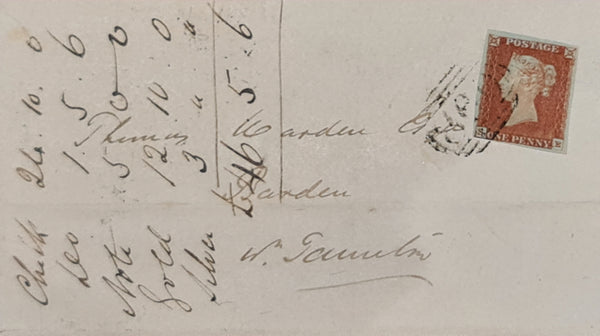 POSTAGE
ONE PENNY
Thomas Warden Esq
Warden
Nr Taunton
Check 24. 10. 0
Do 1. 5. 6
Note 5 0 0
Gold 12 10 0
Silver 3 " "
£46 5 6